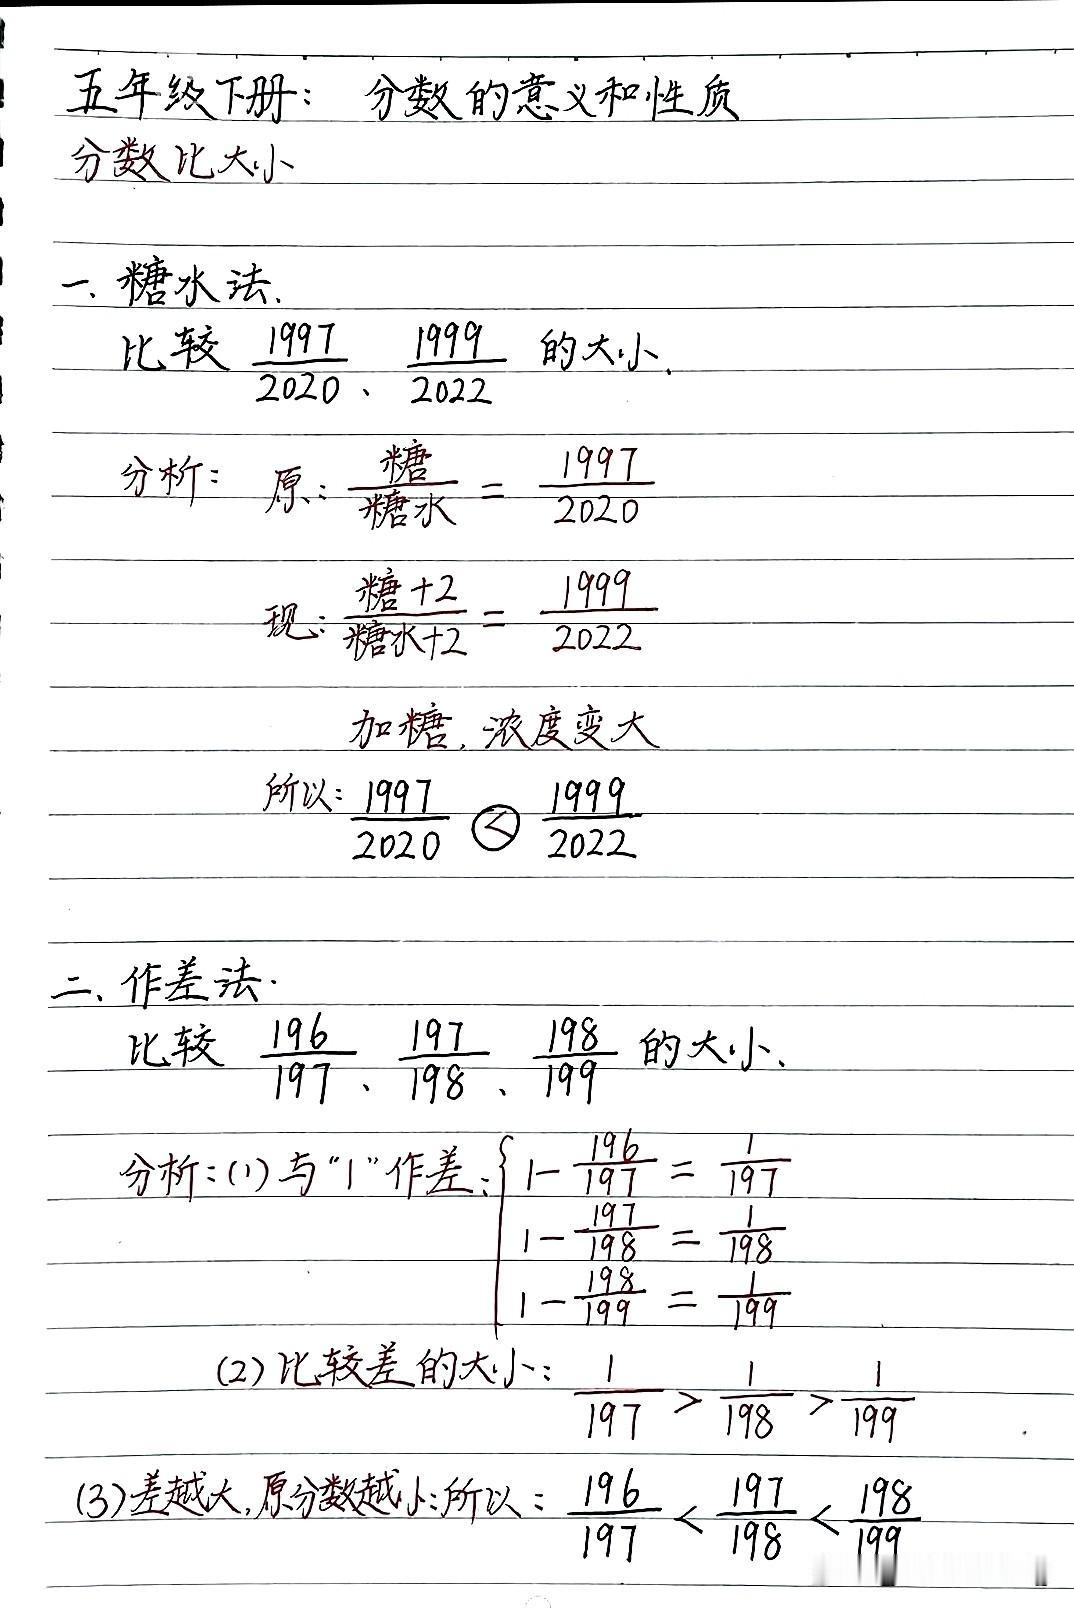 五年级下册： 分数的意义和性质
分数比大小
一、糖水法.
比较 1997/2020、1999/2022 的大小.
分析： 原：糖/糖水 = 1997/2020
现：糖+2/糖水+2 = 1999/2022
加糖，浓度变大
所以：1997/2020 < 1999/2022
二、作差法.
比较 196/197、197/198、198/199 的大小.
分析：(1)与“1”作差：{ 1 - 196/197 = 1/197
1 - 197/198 = 1/198
1 - 198/199 = 1/199
(2)比较差的大小： 1/197 > 1/198 > 1/199
(3)差越大，原分数越小：所以： 196/197 < 197/198 < 198/199